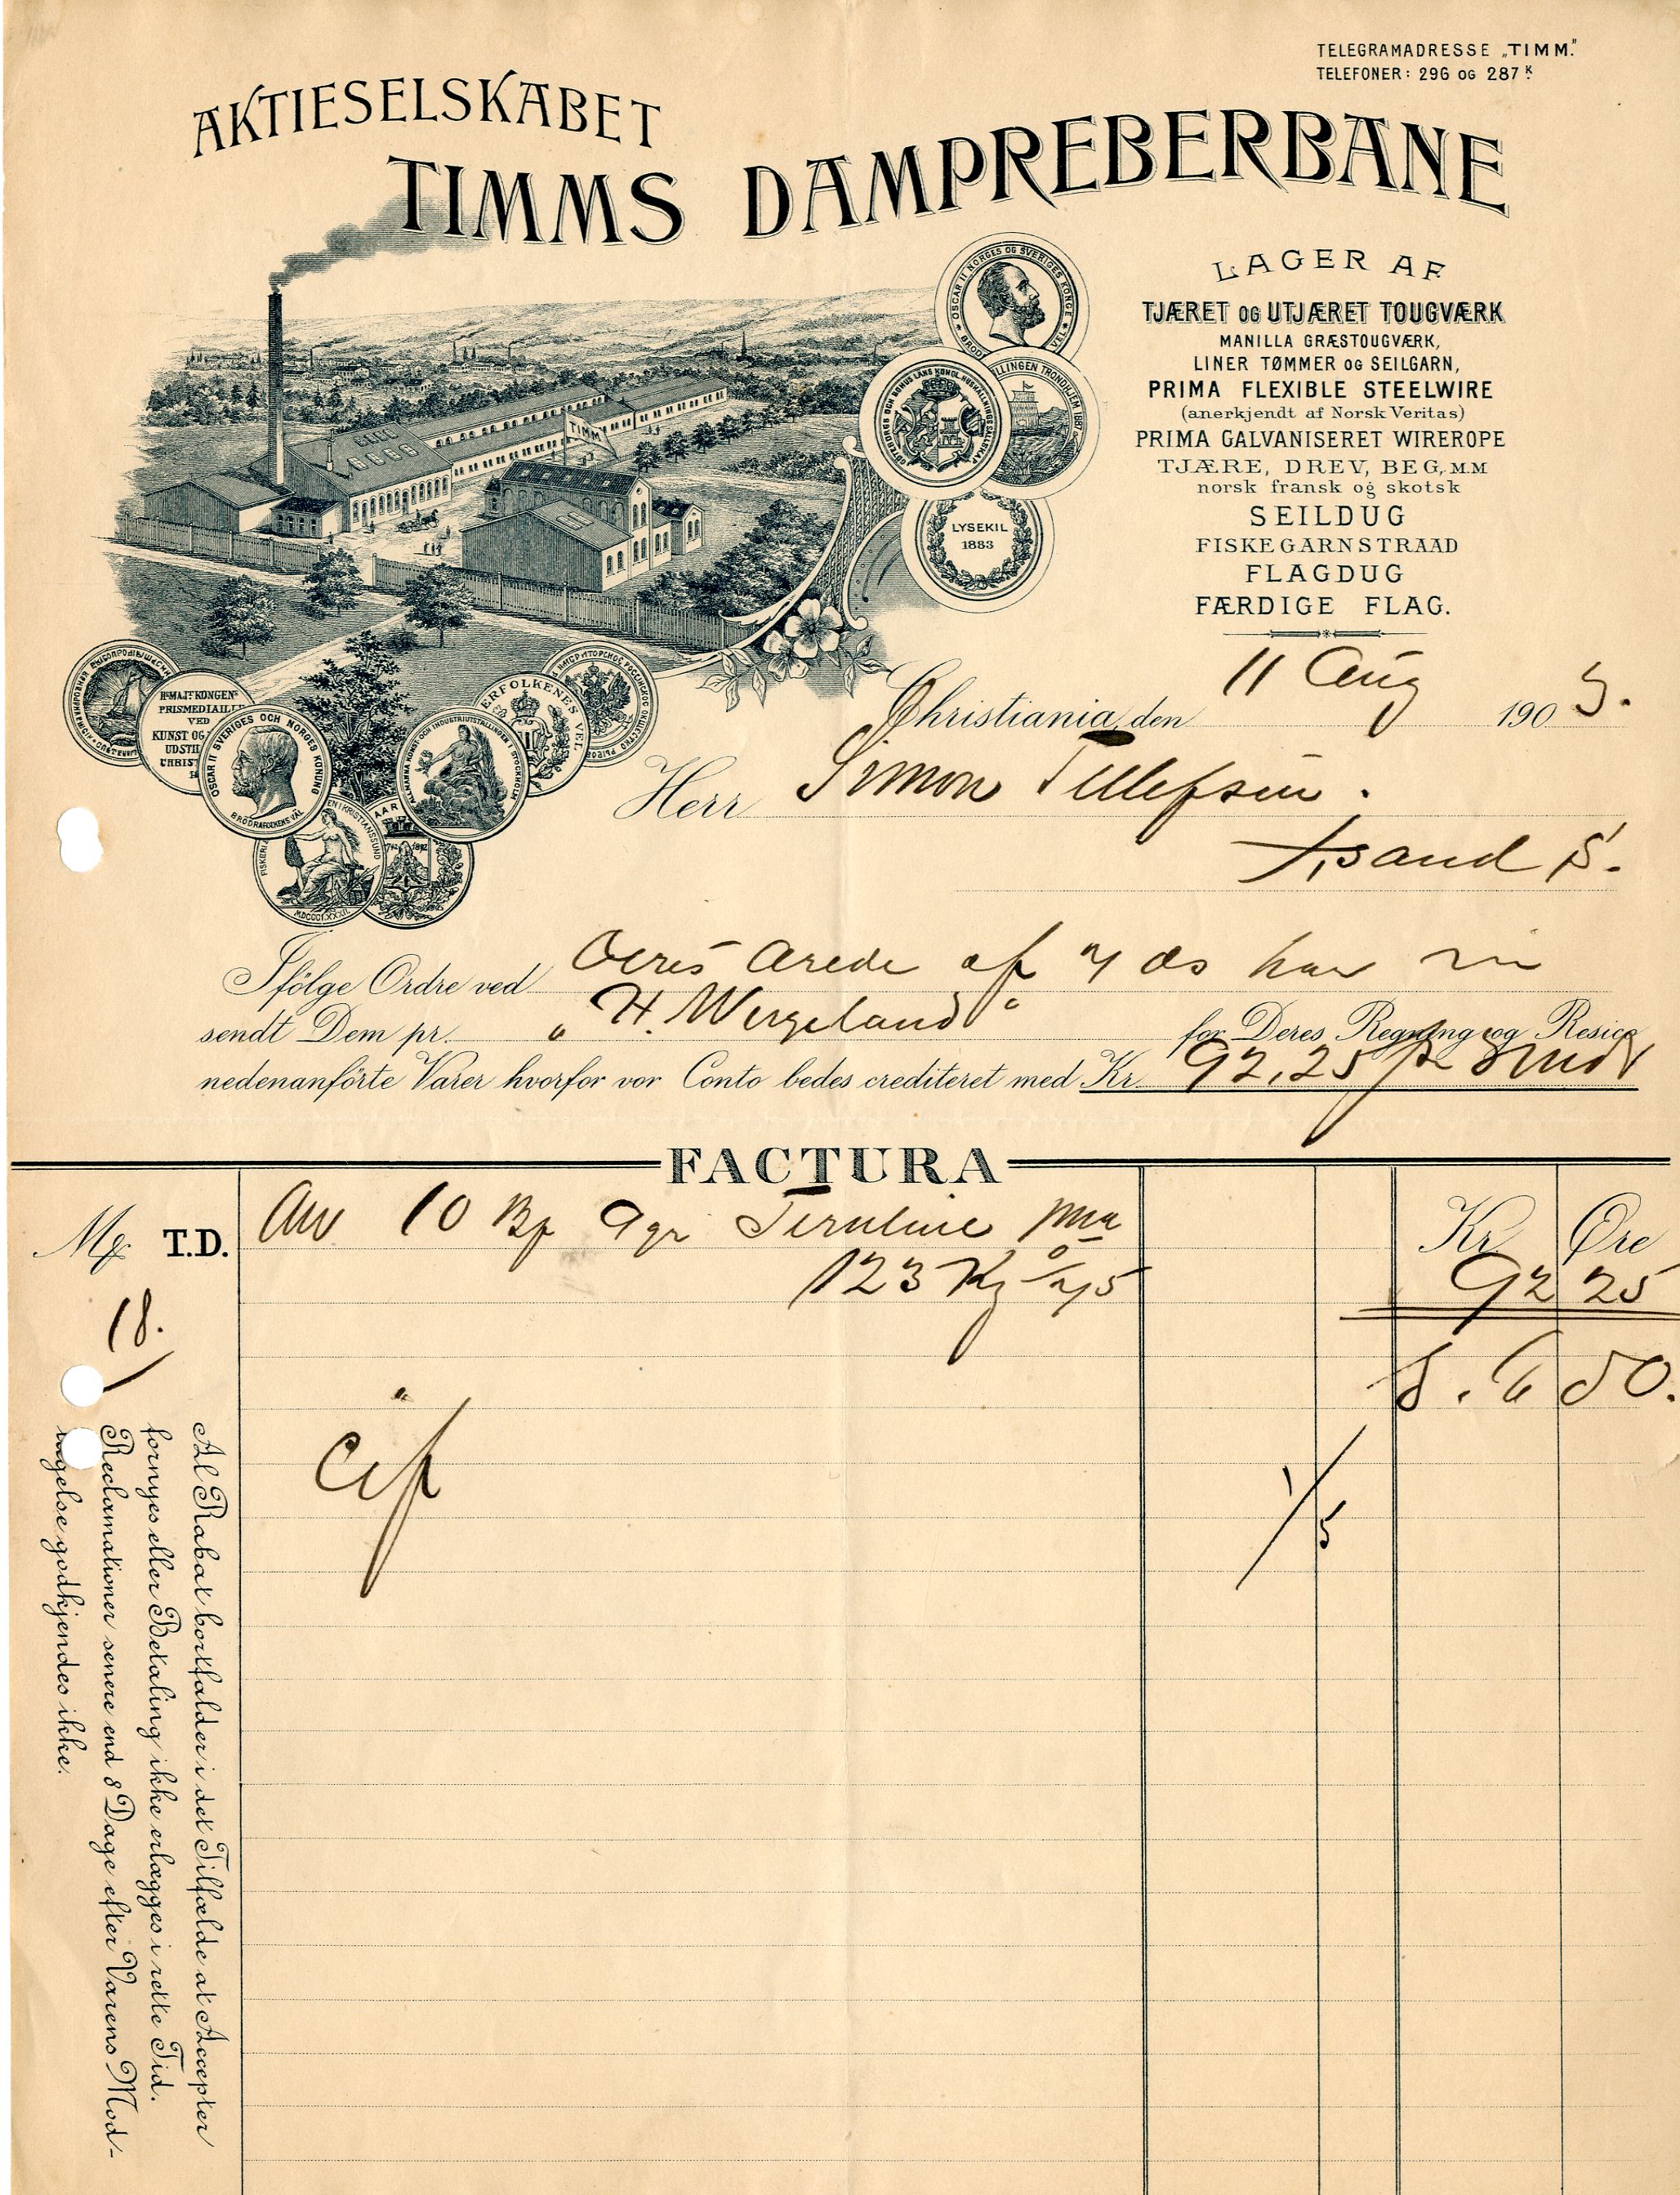 TELEGRAMADRESSE „TIMM."
TELEFONER: 296 OG 287 K.
AKTIESELSKABET
TIMMS DAMPREBERBANE
LAGER AF
TJÆRET OG UTJÆRET TOUGVÆRK
MANILLA GRÆSTOUGVÆRK,
LINER TØMMER OG SEILGARN,
PRIMA FLEXIBLE STEELWIRE
(anerkjendt af Norsk Veritas)
PRIMA GALVANISERET WIREROPE
TJÆRE, DREV, BEG, M.M
norsk fransk og skotsk
SEILDUG
FISKEGARNSTRAAD
FLAGDUG
FÆRDIGE FLAG.
TIMM
OSCAR II NORGES OG SVERIGES KONGE
GÖTEBORGS OCH BOHUS LÄNS KONGL. HUSHÅLLNINGSSÄLLSKAP
LLINGEN TRONDHJEM 1887
LYSEKIL
1883
Hs MAJt KONGENs
PRISMEDIAILLE
VED
KUNST OG
UDSTIL
CHRIST
OSCAR II SVERIGES OCH NORGES KONUNG
BRÖDRAFOLKENS VÄL
ALLMÄNNA KONST OCH INDUSTRIUTSTÄLLNINGEN I STOCKHOLM
ERFOLKENES VEL
EN I KRISTIANSSUND
MDCCCLXXXII
AAR
Christiania, den 11 Aug 1903.
Herr Simon Tellefsen.
Xsand S.
Ifölge Ordre ved Deres Ærede af 7 ds har vi
sendt Dem pr. „H. Wergeland" for Deres Regning og Resico
nedenanförte Varer hvorfor vor Conto bedes crediteret med Kr. 92,25 pr 3 md
FACTURA
Mx T.D. Kr Øre
10 9 gr
123 Kg 75 92 25
18.
6 50.
Cif
1/5
Al Rabat bortfalder i det Tilfælde at Accepter
fornyes eller Betaling ikke erlægges i rette Tid.
Reclamationer senere end 8 Dage efter Varens Mod-
tagelse godkjendes ikke.